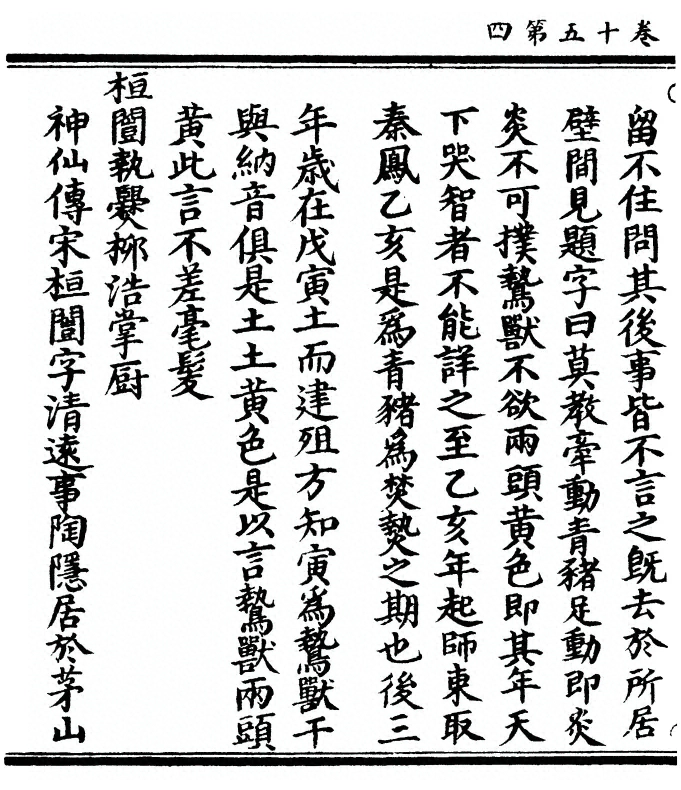 卷十五第四
留不住問其後事皆不言之旣去於所居
壁間見題字曰莫教牽動青豬足動即炎
炎不可撲鷙獸不欲兩頭黃色即其年天
下哭智者不能詳之至乙亥年起師東取
秦鳳乙亥是爲青豬爲焚爇之期也後三
年歲在戊寅土而建殂方知寅爲鷙獸干
與納音俱是土土黃色是以言鷙獸兩頭
黃此言不差毫髮
桓闓執爨栁浩掌厨
神仙傳宋桓闓字清遠事陶隱居於茅山